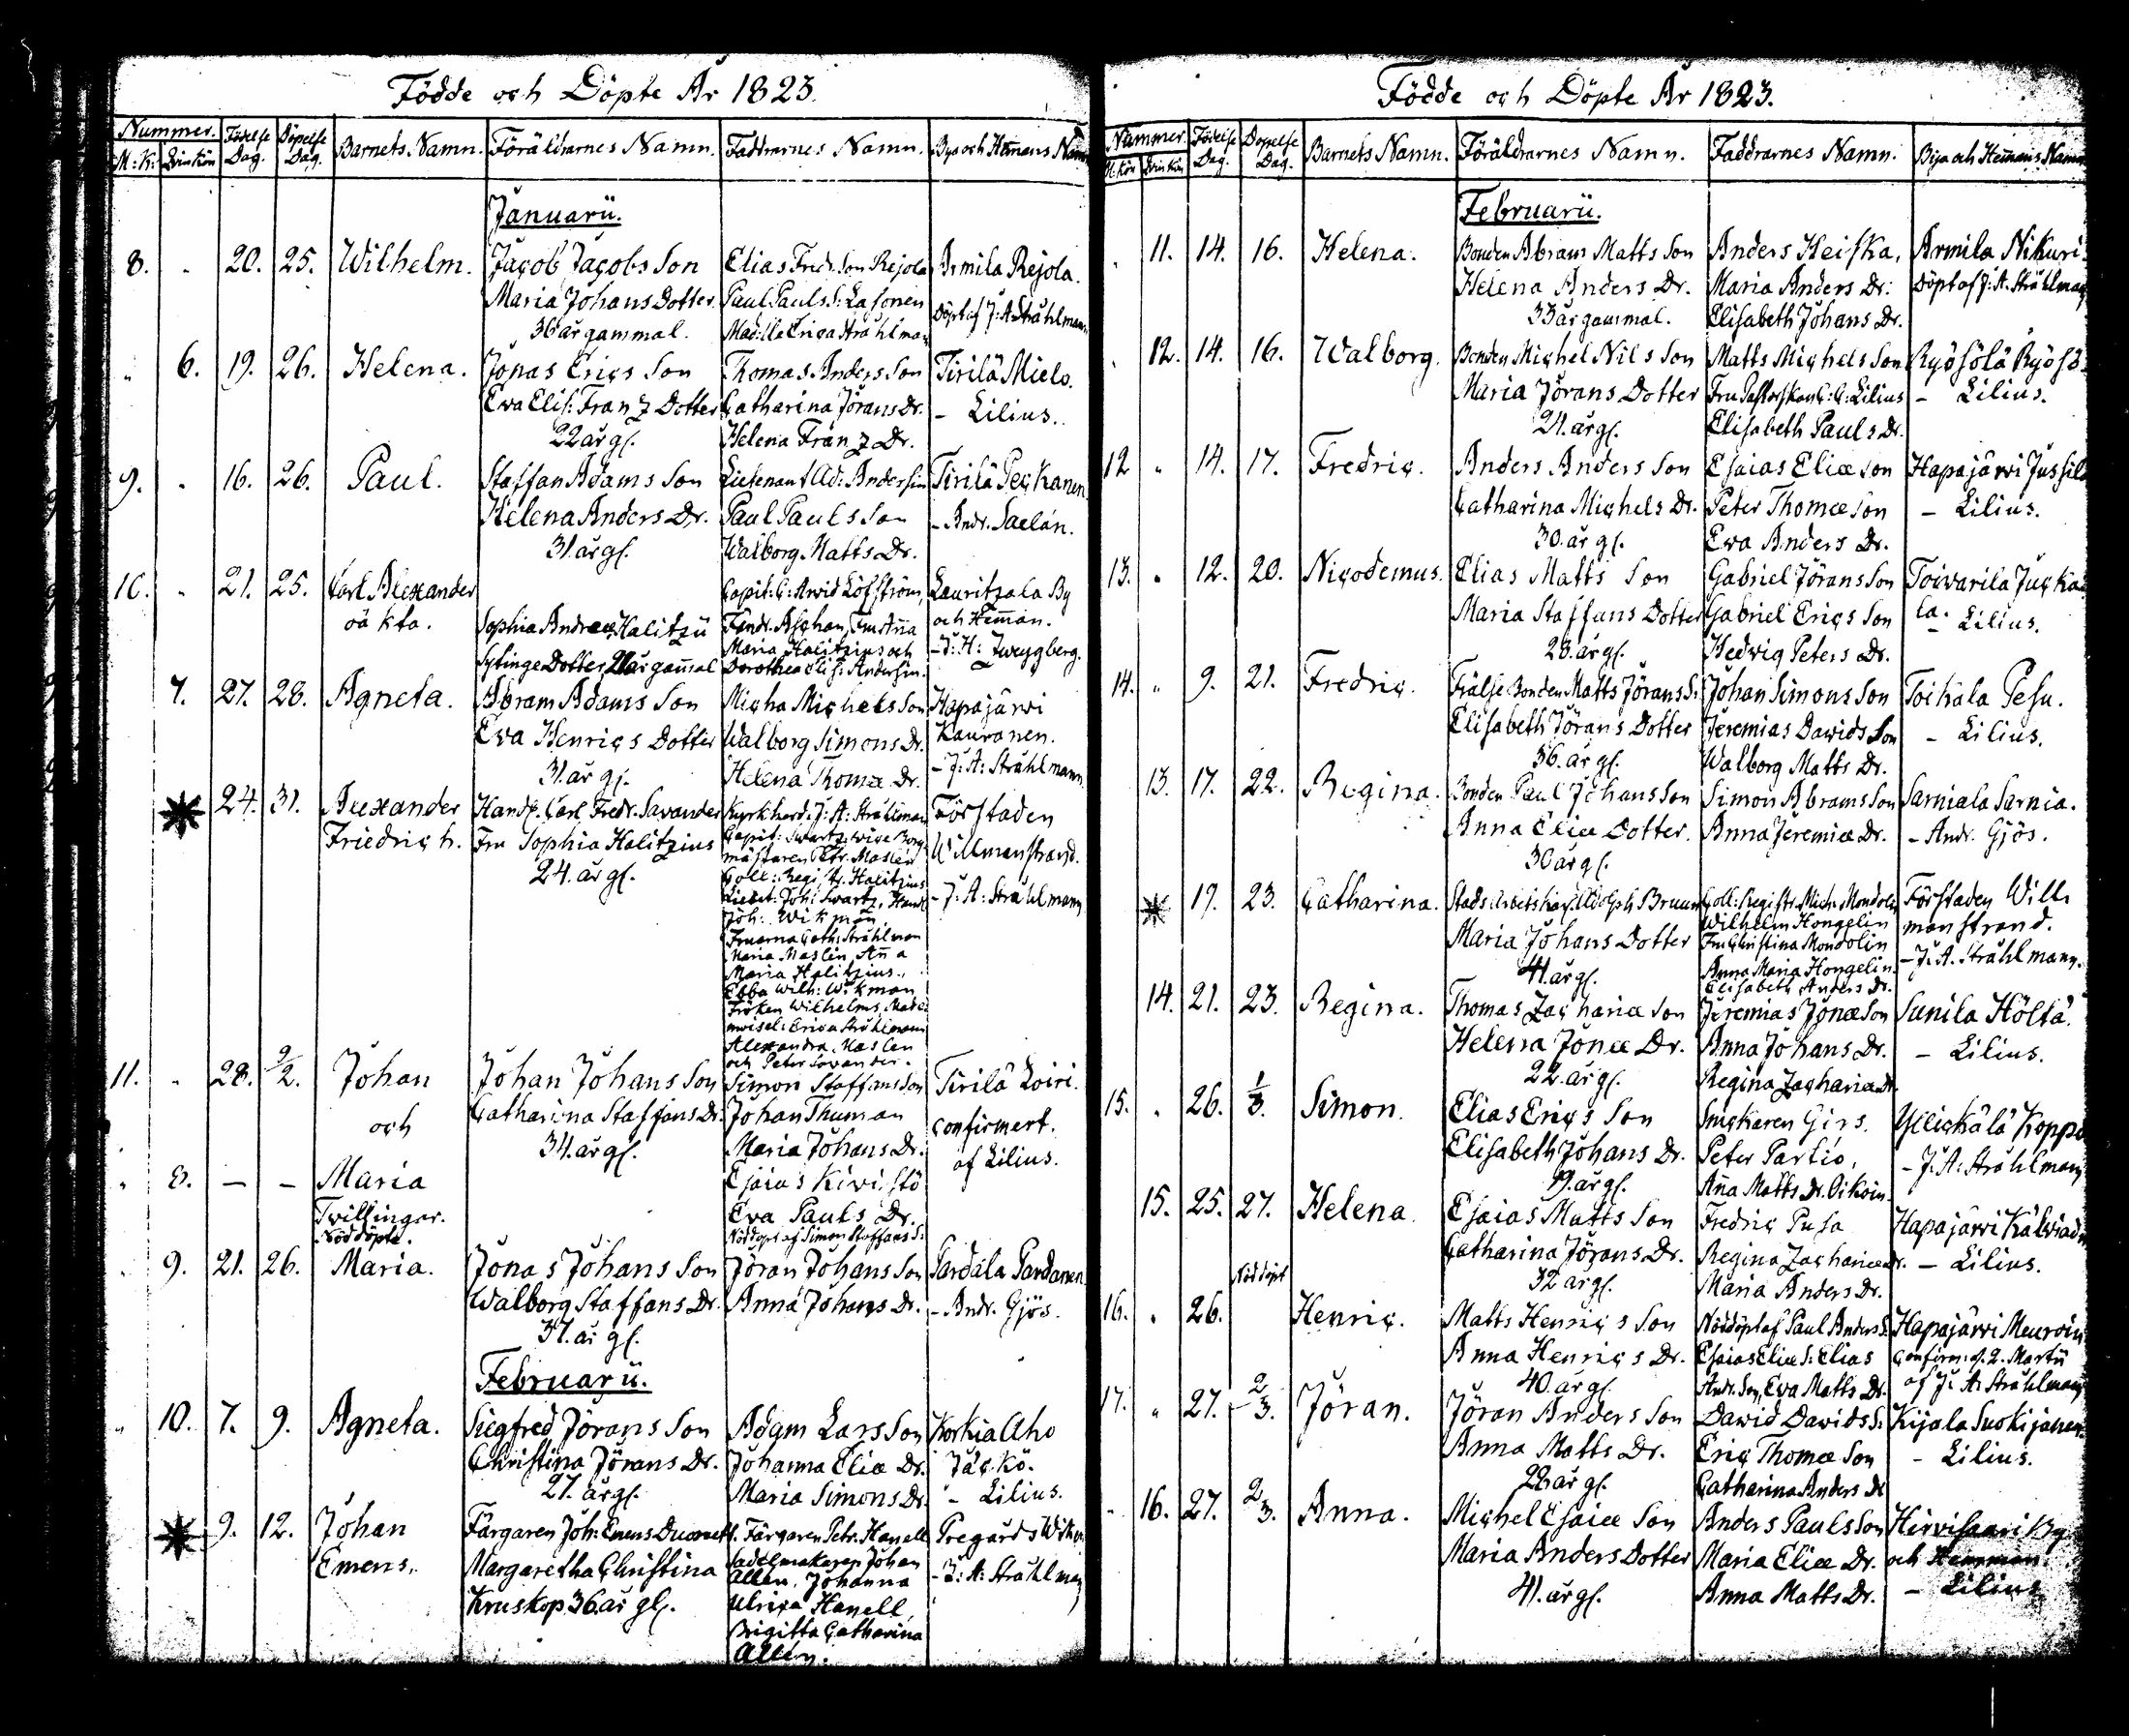 Födde och Döpte År 1823.
Nummer. Födelse Dag. Döpelse Dag. Barnets Namn. Föräldrarnes Namn. Faddrarnes Namn. Bys och Hemans Namn
M: K: Qvinkön
Januarii.
8. 20. 25. Wilhelm. Jacob Jacobs Son Elias Fredr. Son Rejola Armila Rejola.
Maria Johans Dotter. Paul Pauls S: Lasonen Döpt af J: A Stråhlman.
36 år gammal. Mad:lle Erica Stråhlman
" 6. 19. 26. Helena. Jonas Erics Son Thomas Anders Son Tirilä Mielo.
Eva Elis: Franz Dotter Catharina Jörans Dr. - Lilius.
22 år gl. Helena Franz Dr.
9. " 16. 26. Paul. Staffan Adams Son Lieutenant Ad: Andersin Tirilä Peckanen
Helena Anders Dr. Paul Pauls Son - Andr. Saelán.
31. år gl. Walborg Matts Dr.
10. " 21. 25. Carl Alexander Capit: C: Arvid Löfström, Lauritsala By
oäkta. Sophia Andreæ Halitzii Fendr. Aschan, Fru Aña och Hem̃an.
Maria Halitzius och - J: H: Zweygberg.
Sytinge Dotter 21 år gam̃al Dorothea Elis: Andersin.
7. 27. 28. Agneta. Abram Adams Son Micha Michels Son Hapajärvi
Eva Henrics Dotter Walborg Simons Dr. Kauranen.
31. år gl. Helena Thomæ Dr. - J: A: Stråhlmann
24. 31. Alexander Handl. Carl Fredr. Savander Kyrkherd. J: A: Stråhlman Förstaden
Friedrich. Fru Sophia Halitzius Capit: Swartz, Borg- Willmanstrand.
24. år gl. mästaren Petr. Maslén - J: A: Stråhlmann
Coll: Regist: Halitzius
Lieut: Joh: Swartz, Handl
Joh: Wikman,
Fruarna Cath: Stråhlman
Maria Maslin, Aña
Maria Halitzius,
Ebba Wilh: Wikman
Fröken Wilhelms, Made-
moisel: Erica Stråhlmann
Alexandra Maslen
och Peter Savander.
11. " 28. 2/2. Johan Johan Johans Son Simon Staffans Son Tirilä Loiri.
och Catharina Staffans Dr. Johan Thuman confirmert.
34. år gl. Maria Johans Dr. af Lilius.
" 8. — — Maria Esaias Kivistö
Tvillingar. Eva Pauls Dr.
Nöddöpte. Nöddöpt af Simon Staffans S:
9. 21. 26. Maria. Jonas Johans Son Jöran Johans Son Pardala Pardanen
Walborg Staffans Dr. Anna Johans Dr. - Andr. Gjös.
37. år gl.
Februarii.
" 10. 7. 9. Agneta. Siegfred Jörans Son Adam Lars Son Korkia Aho
Christina Jörans Dr. Johanna Eliæ Dr. Jäckö.
27. år gl. Maria Simons Dr. - Lilius.
9. 12. Johan Färgaren Joh: Emens Färgaren Petr. Hanell
Emens. Margaretha Christina Sadelmakaren Johan - J: A: Stråhlman
Kruskop 36. år gl. Allén, Johanna
Ulrica Hanell,
Brigitta Catharina
Allén.
Födde och Döpte År 1823.
Nummer Födelse Dag. Döpelse Dag. Barnets Namn. Föräldrarnes Namn. Faddrarnes Namn. Bys och Hemans Namn
M: Kön Qvin Kön
Februarii.
" 11. 14. 16. Helena. Bonden Abram Matts Son Anders Heiska, Armila Nikuri.
Helena Anders Dr. Maria Anders Dr. Döpt af J: A. Stråhlman
33 år gammal. Elisabeth Johans Dr.
12. 14. 16. Walborg. Bonden Michel Nils Son Matts Michels Son Ryösölä Ryösö
Maria Jörans Dotter Fru Pastorskan C: C: Lilius - Lilius.
21. år gl. Elisabeth Pauls Dr.
12 " 14. 17. Fredric. Anders Anders Son Esaias Eliæ Son Hapajärvi Jussila
Catharina Michels Dr. Peter Thomæ Son - Lilius.
30. år gl. Eva Anders Dr.
13. " 12. 20. Nicodemus. Elias Matts Son Gabriel Jörans Son Toivarila Jucka-
Maria Staffans Dotter Gabriel Erics Son la. - Lilius.
28. år gl. Hedvig Peters Dr.
14. " 9. 21. Fredric. Frälse Bonden Matts Jörans S: Johan Simons Son Toikala Pesu.
Elisabeth Jörans Dotter Jeremias Davids Son - Lilius.
36. år gl. Walborg Matts Dr.
13. 17. 22. Regina. Bonden Paul Johans Son Simon Abrams Son Sarviala Sarvia.
Anna Eliæ Dotter. Anna Jeremiæ Dr. - Andr. Gjös.
30 år gl.
19. 23. Catharina. Stads Adolph Bruun Coll: Regist: Mich: Mondolin Förstaden Will-
Maria Johans Dotter Wilhelm Hongelin manstrand.
41. år gl. Fru Christina Mondolin - J: A. Stråhlmann.
Anna Maria Hongelin
Elisabeth Anders Dr.
14. 21. 23. Regina. Thomas Zachariæ Son Jeremias Jonæ Son Sunila Höltä.
Helena Jonæ Dr. Anna Johans Dr. - Lilius.
22. år gl. Regina Zachariæ Dr.
15. " 26. 1/3. Simon. Elias Erics Son Snickaren Girs. Yllickälä Koppa
Elisabeth Johans Dr. Peter Partio, - J: A: Stråhlman
år gl. Aña Matts Dr. Oikoin.
15. 25. 27. Helena Esaias Matts Son Fredric Pusa Hapajärvi
Catharina Jörans Dr. Regina Zachariæ Dr. - Lilius.
32 år gl. Maria Anders Dr.
Nöddöpt
16. " 26. Henric. Matts Henrics Son Nöddöpt af Paul Anders S. Hapajärvi Meuroin
Anna Henrics Dr. Esaias Eliæ S: Elias Confirm: d. 2. Martii
40. år gl. Andr. Son, Eva Matts Dr. af J: A: Stråhlman
17. " 27. 2/3. Jöran. Jöran Anders Son David Davids S: Kijala Suokijanen
Anna Matts Dr. Eric Thomæ Son - Lilius.
28 år gl. Catharina Anders Dr
16. 27. 2/3. Anna. Michel Esaiæ Son Anders Pauls Son Hirvisaari By
Maria Anders Dotter Maria Eliæ Dr. och Hemman.
41. år gl. Anna Matts Dr. - Lilius